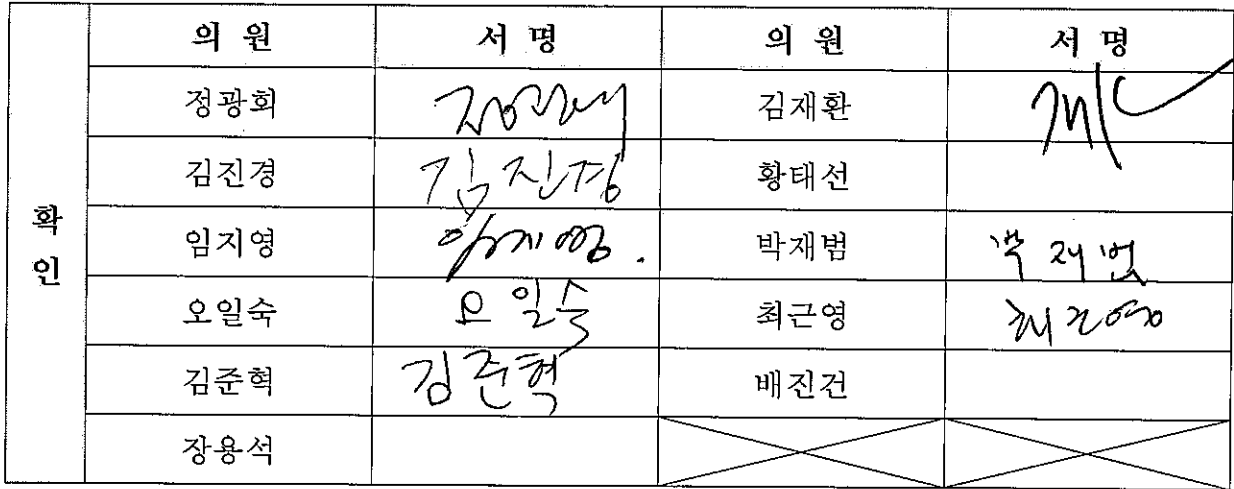 의 원 서 명 의 원 서 명
정광회 김재환
김진경 김진경 황태선
확 임지영 임지영. 박재범 박재범
인
오일숙 오일숙 최근영 최근영
김준혁 김준혁 배진건
장용석